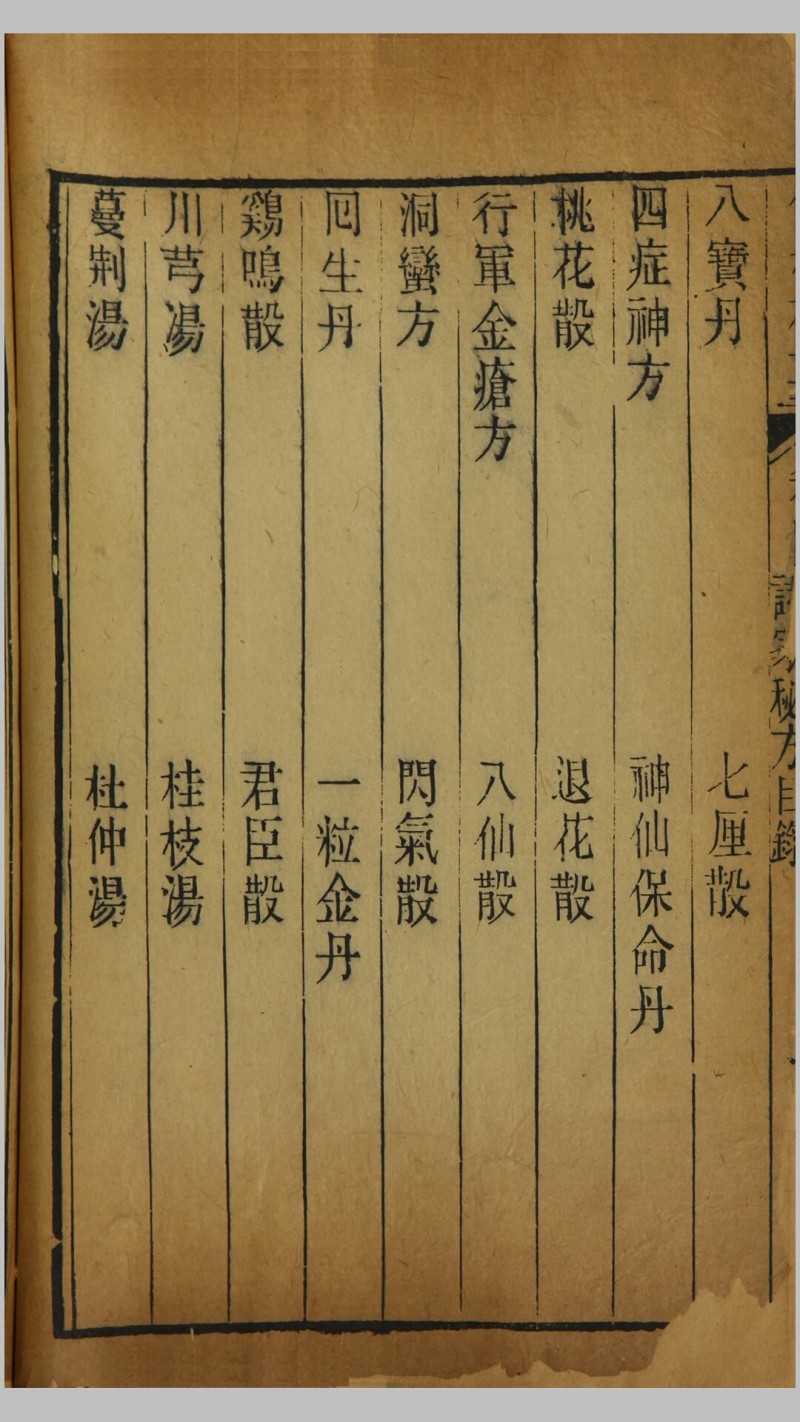 秘方目錄
八寶丹　七厘散
四症神方　神仙保命丹
桃花散　退花散
行軍金瘡方　八仙散
洞蠻方　閃氣散
囘生丹　一粒金丹
鷄鳴散　君臣散
川芎湯　桂枝湯
蔓荆湯　杜仲湯